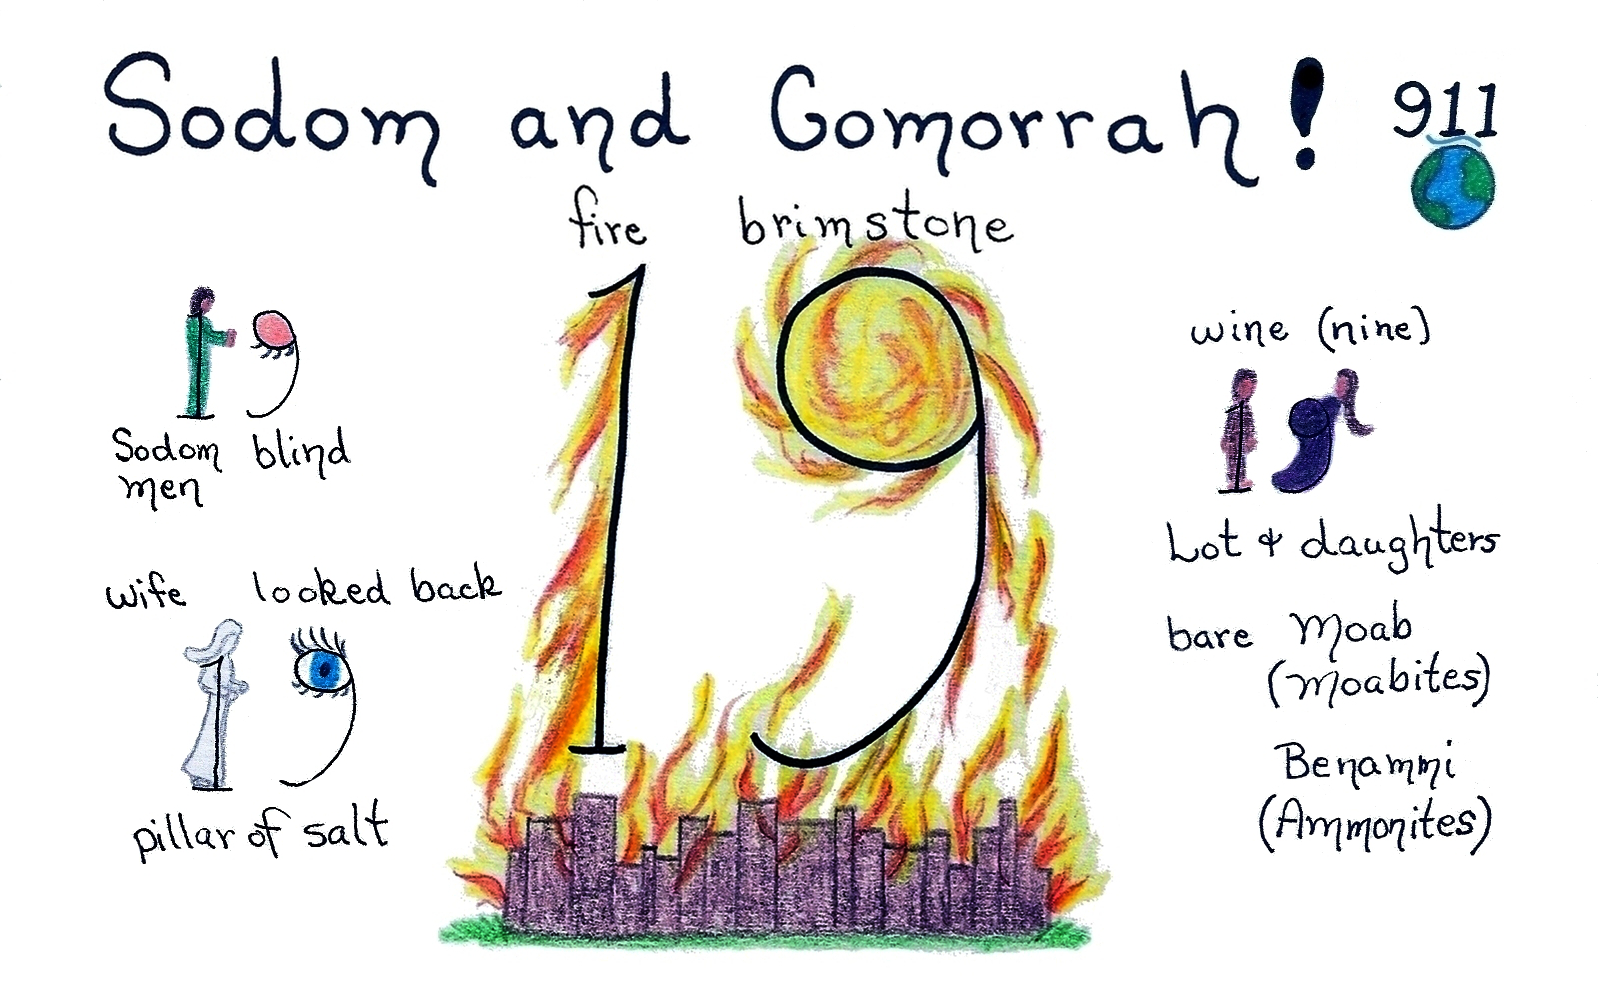 Sodom and Gomorrah! 911
fire brimstone
19
19
Sodom blind
men
wife looked back
19
pillar of salt
wine (nine)
19
Lot & daughters
bare Moab
(Moabites)
Benammi
(Ammonites)